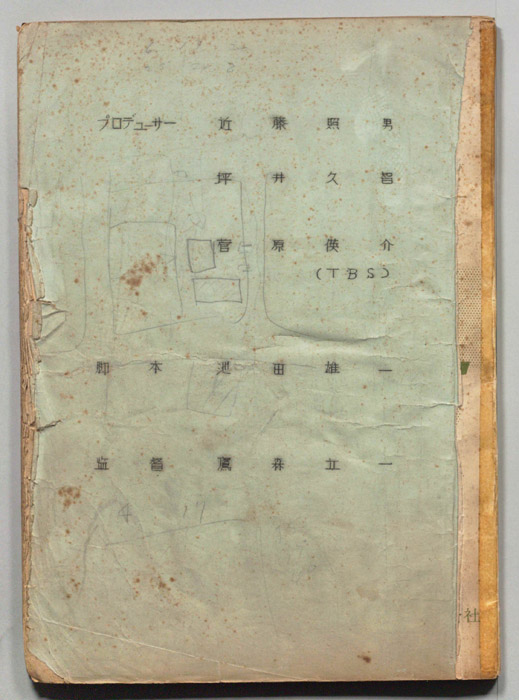 プロデューサー 近藤照男
坪井久智
菅原俊介
(TBS)
脚本 池田雄一
監督 鷹森立一
4 17
社